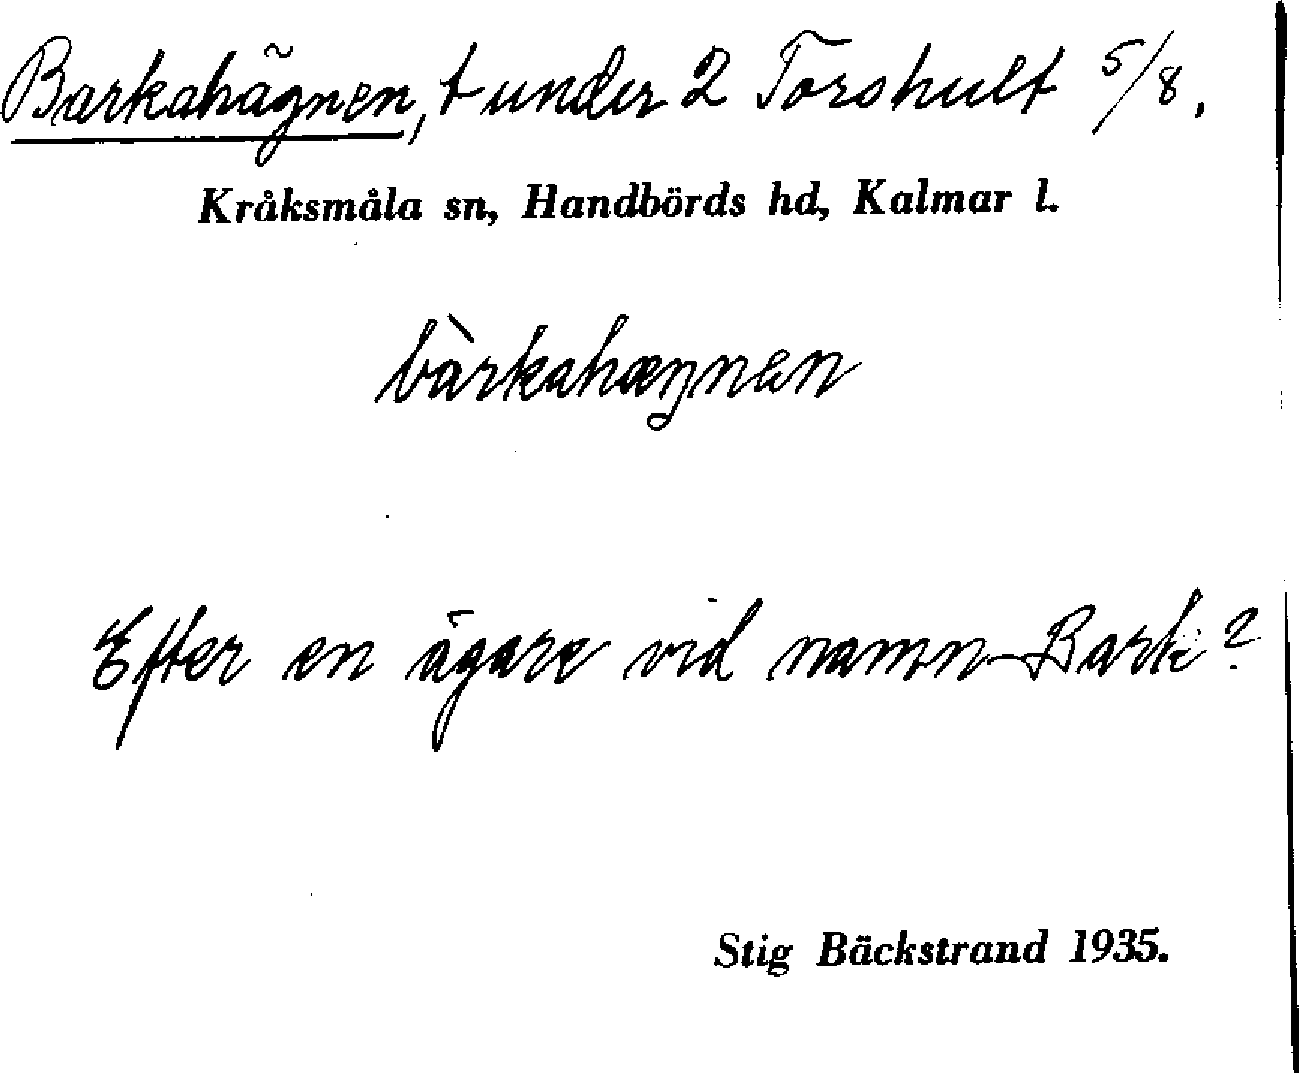 Barkahägnen, t under 2 Torshult 5/8.
Kråksmåla sn, Handbörds hd, Kalmar l.
bàrkahæŋnan
Efter en ägare vid namn Bark?
Stig Bäckstrand 1935.